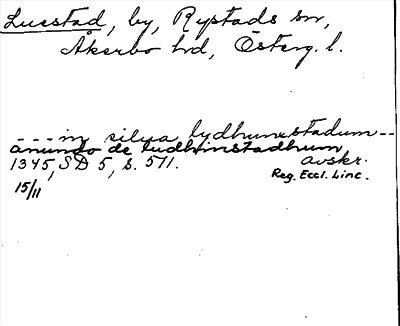 Luestad, by, Rystads sn,
Åkerbo hd, Österg. l.
--- in silua lydhunestadum --
anundo de ludhinstadhum
1345, SD 5, s. 571. avskr.
Reg. Eccl. Linc.
15/11